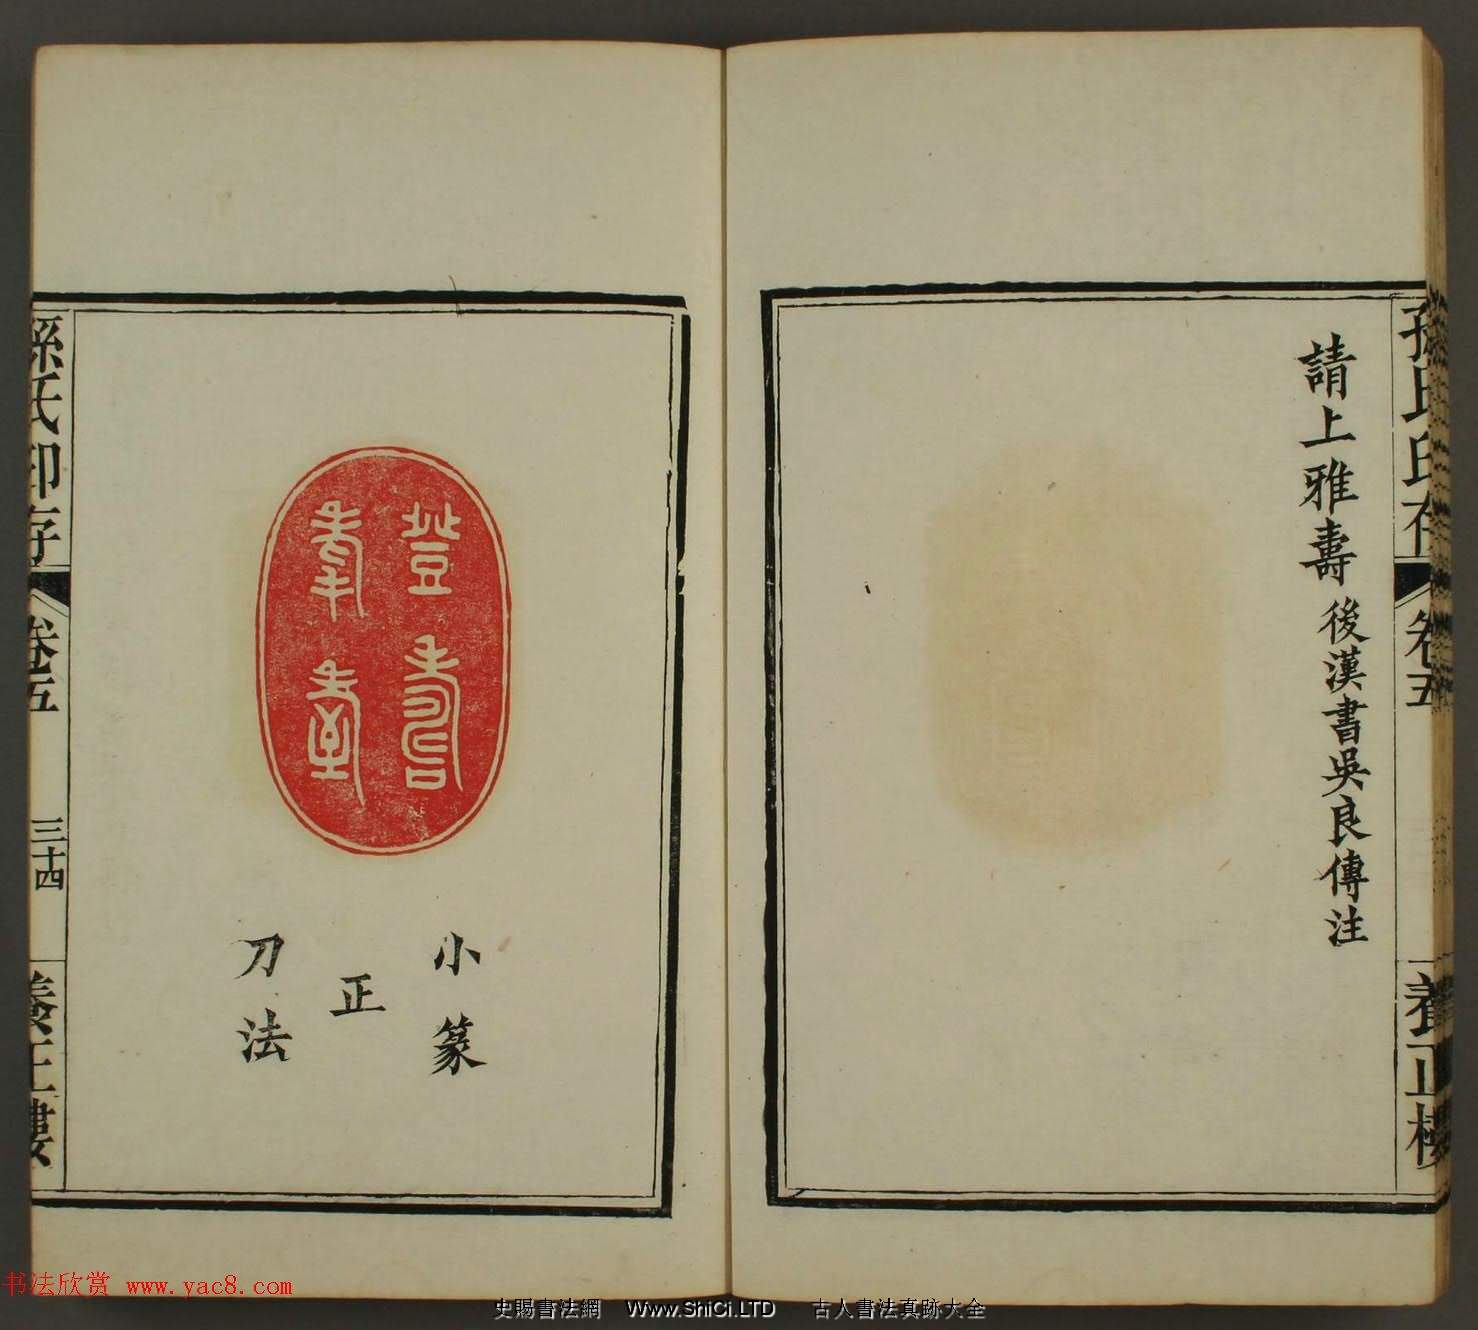 孫氏印存 卷五 養正樓
請上雅壽 後漢書吳良傳注
小篆
正
刀法
孫氏印存 卷五 三十四 養正樓
书法欣赏 www.yac8.com
史賜書法網 Www.ShiCi.LTD 古人書法真跡大全